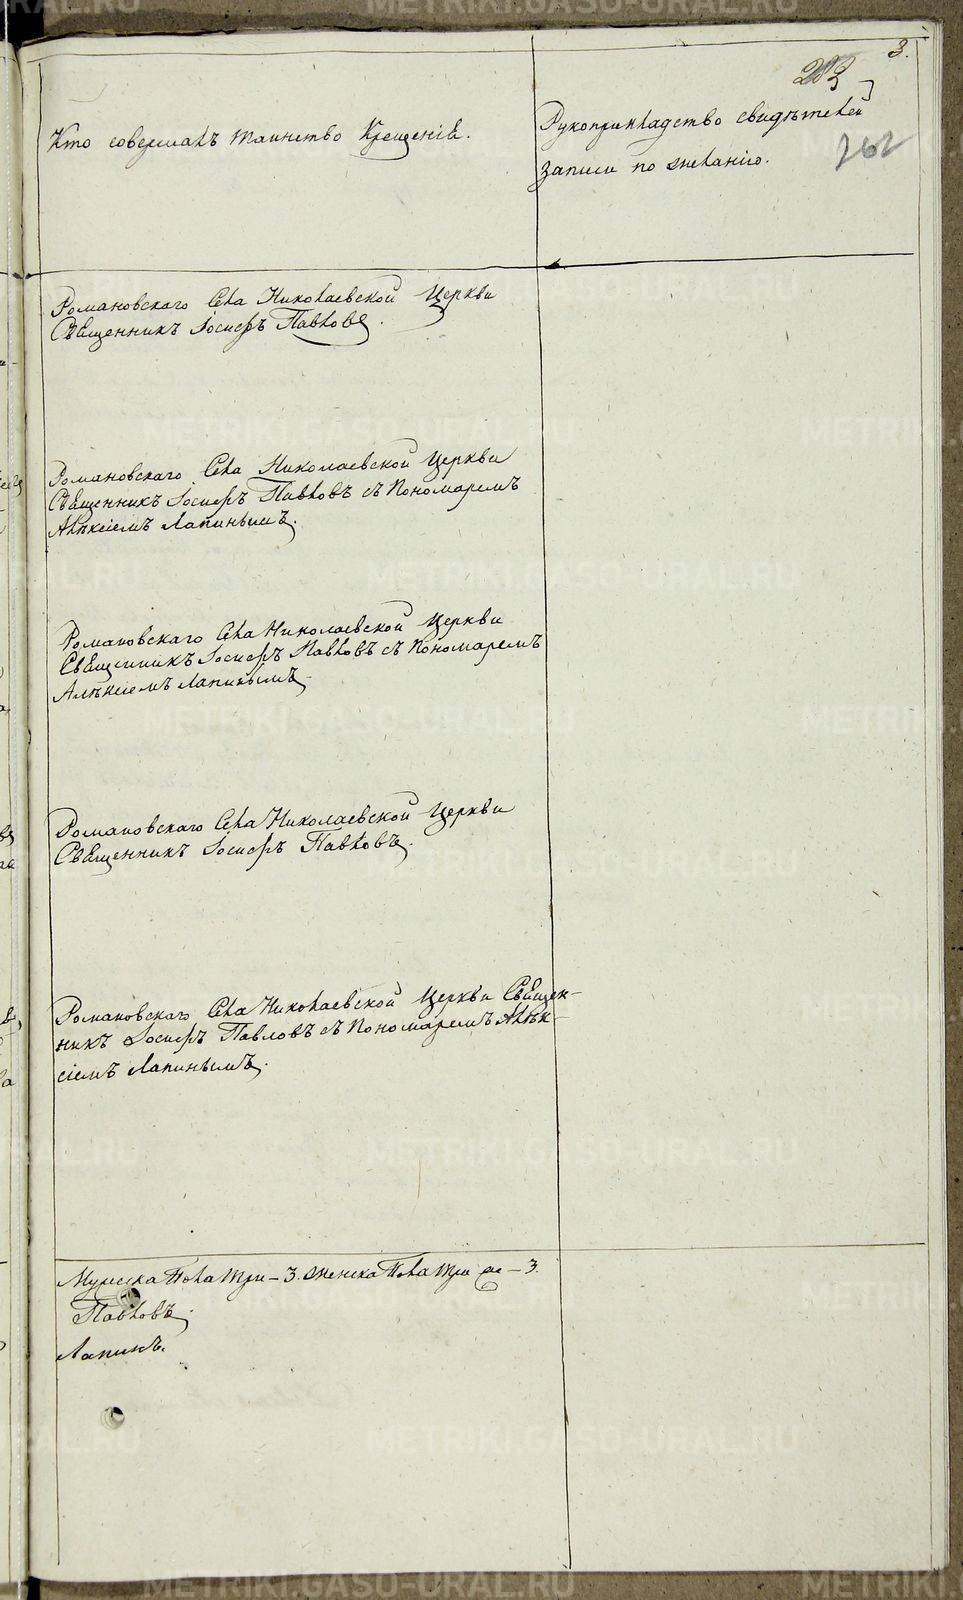 3.
262
Кто совершалъ таинство крещенія.
Рукоприкладство свидѣтелей
записи по желанію.
Романовскаго Села Николаевской Церкви
Священникъ Іосифъ Павловъ.
Романовскаго Села Николаевской Церкви
Священникъ Іосифъ Павловъ съ Пономаремъ
Алѣксіемъ Лапинымъ.
Романовскаго Села Николаевской Церкви
Священникъ Іосифъ Павловъ съ Пономаремъ
Алѣксіемъ Лапинымъ.
Романовскаго Села Николаевской Церкви
Священникъ Іосифъ Павловъ.
Романовскаго Села Николаевской Церкви Священ-
никъ Іосифъ Павловъ съ Пономаремъ Алѣк-
сіемъ Лапинымъ.
Мужеска Пола три – 3. женска Пола три – 3.
Павловъ.
Лапинъ.
METRIKI.GASO-URAL.RU